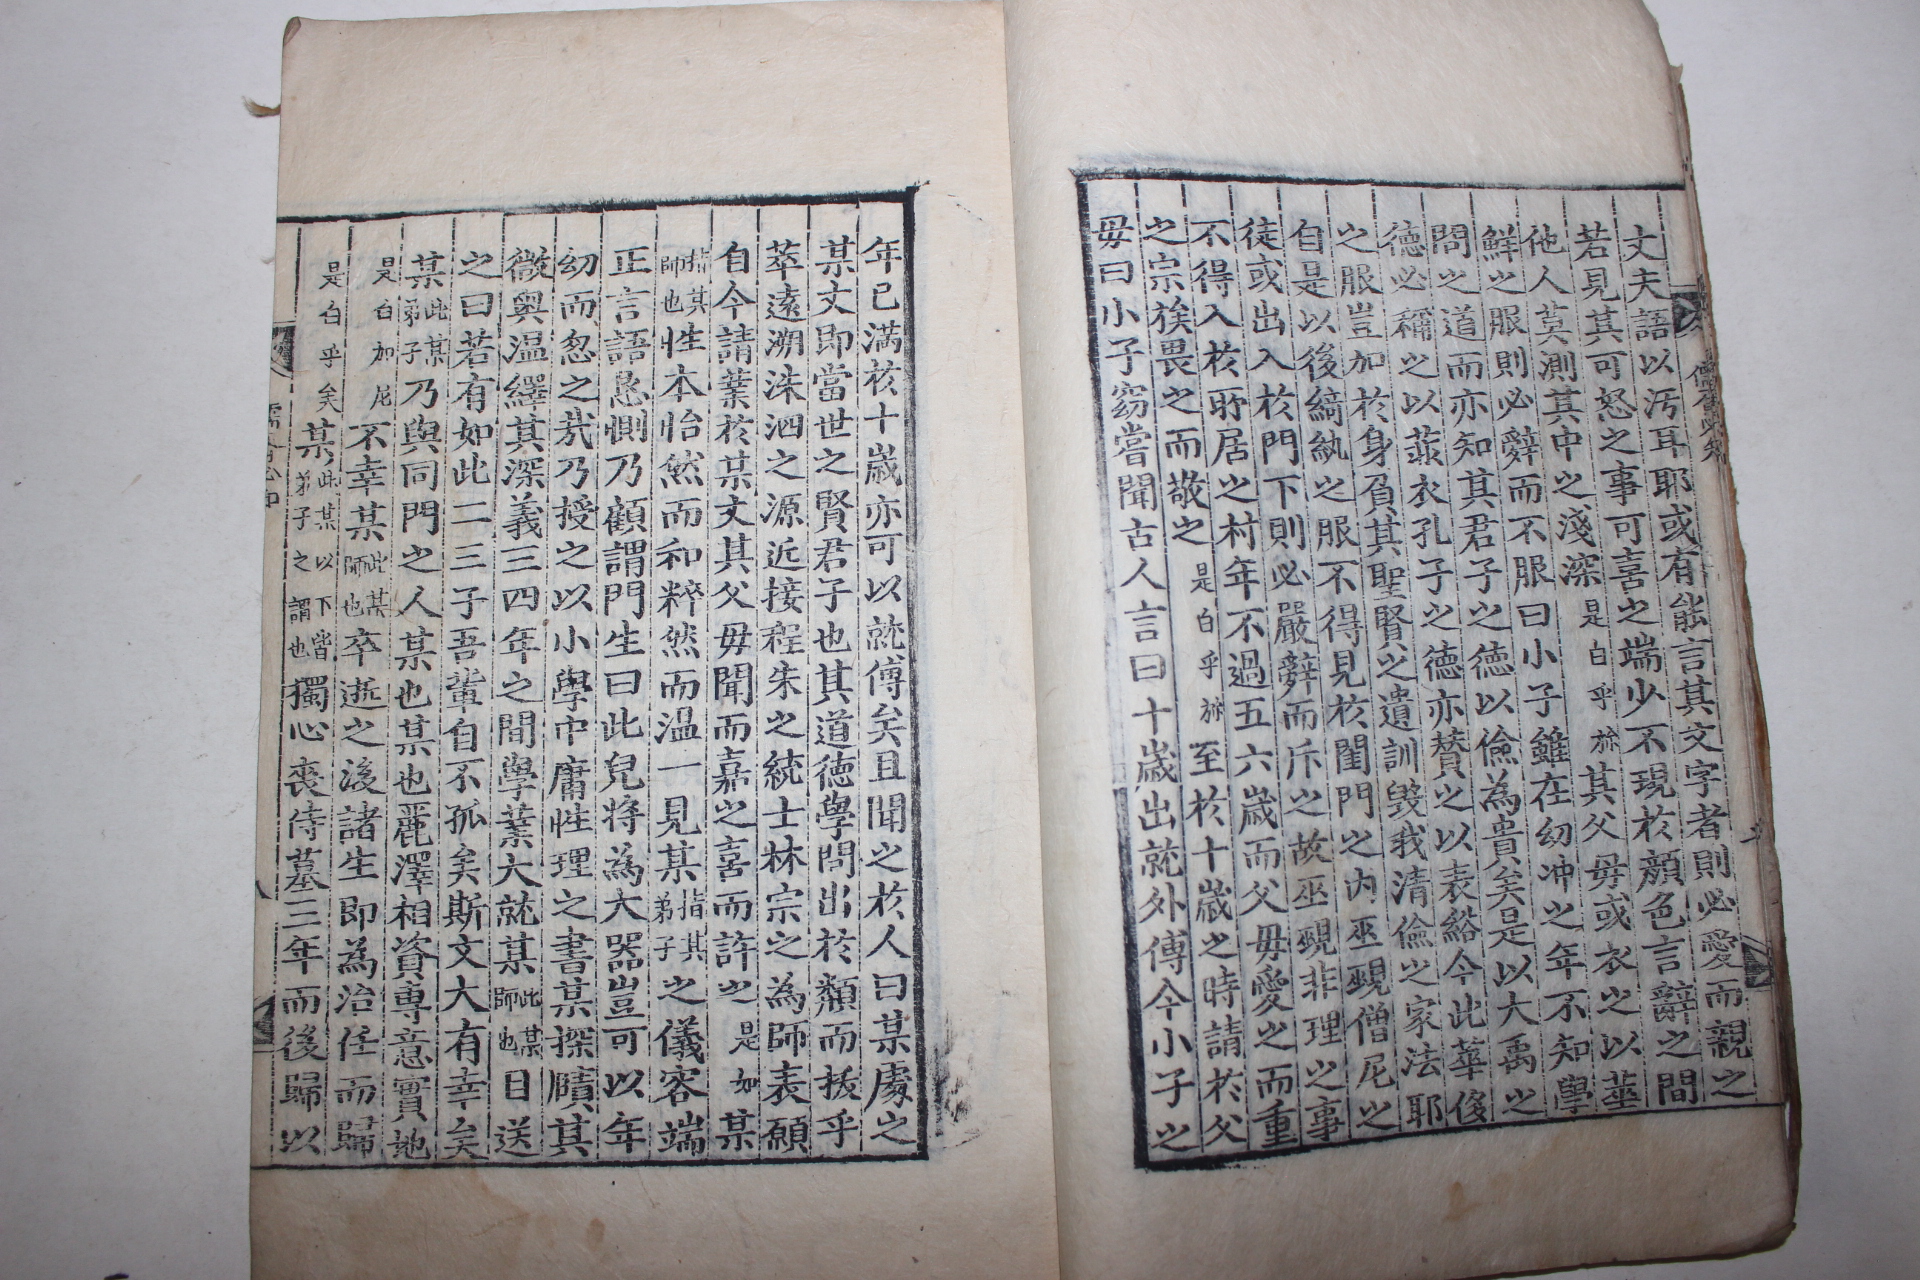 丈夫語以汚耳耶或有能言其文字者則必愛而親之
若見其可怒之事可喜之端少不現於顔色言辭之間
他人莫測其中之淺深是白乎旀其父母或衣之以華
鮮之服則必辭而不服曰小子雖在幼冲之年不知學
問之道而亦知其君子之德以儉為貴矣是以大禹之
德必稱之以菲衣孔子之德亦賛之以表綌今此華侈
之服豈加於身負其聖賢之遺訓毁我清儉之家法耶
自是以後綺紈之服不得見於閨門之內巫覡僧尼之
徒或出入於門下則必嚴辭而斥之故巫覡非理之事
不得入於所居之村年不過五六歲而父母愛之而重
之宗族畏之而敬之是白乎旀至於十歲之時請於父
母曰小子窃嘗聞古人言曰十歲出就外傅今小子之
年已満於十歲亦可以就傅矣且聞之於人曰某處之
某丈即當世之賢君子也其道德學問出於類而拔乎
萃遠溯洙泗之源近接程朱之統士林宗之為師表願
自今請業於某丈其父母聞而嘉之喜而許之是如某
指其師也性本怡然而和粹然而温一見某指其弟子之儀容端
正言語恳惻乃顧謂門生曰此兒将為大器豈可以年
幼而忽之㢤乃授之以小學中庸性理之書某探賾其
微與温繹其深義三四年之間學業大就某此某師也目送
之曰若有如此二三子吾輩自不孤矣斯文大有幸矣
某此某弟子乃與同門之人某也某也麗澤相資専意實地
是白加尼不幸某此某師也卒逝之後諸生即為治任而歸
是白乎矣某此某以下皆弟子之謂也獨心喪侍墓三年而後歸以